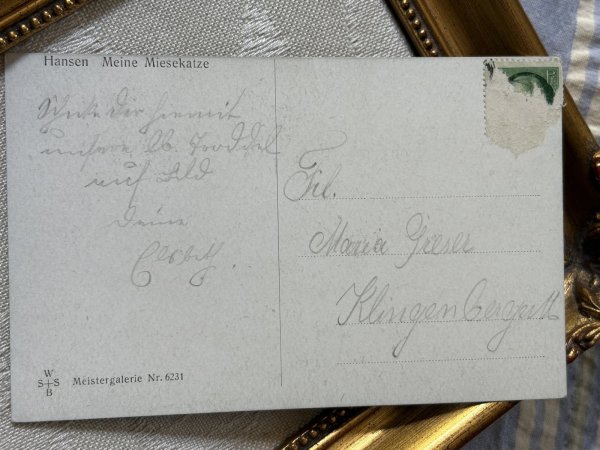 Hansen Meine Miesekatze
Schicke Dir hiermit
unsere lb.
auf Bild
Deine
Frl.
Maria Gieser
Klingenberg
W
S S
B
Meistergalerie Nr. 6231